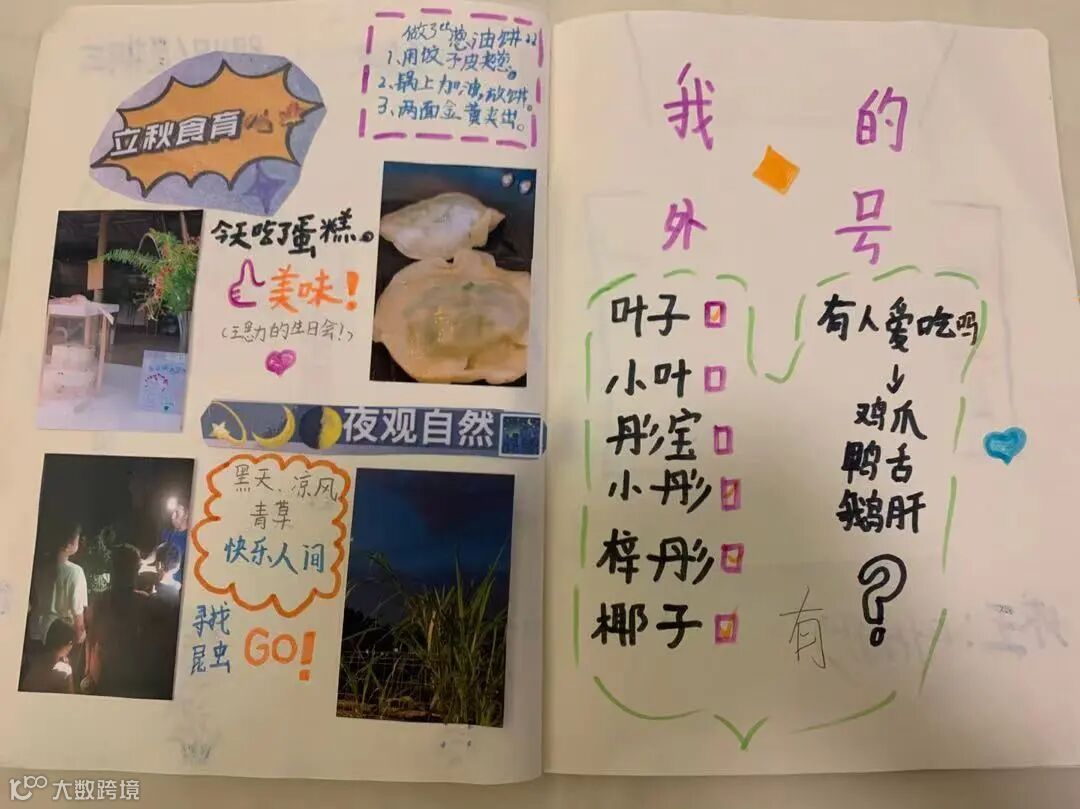 做了“葱油饼”
1、用饺子皮夹葱。
2、锅上加油，放饼。
3、两面金黄夹出。
立秋食育
今天吃了蛋糕。
美味！
的生日会！)
夜观自然
黑天、凉风
青草
快乐人间
寻找
昆虫
GO！
我的
外号
叶子
小叶
彤宝
小彤
梓彤
椰子
有人爱吃吗
↓
鸡爪
鸭舌
鹅肝
?
有
大数跨境